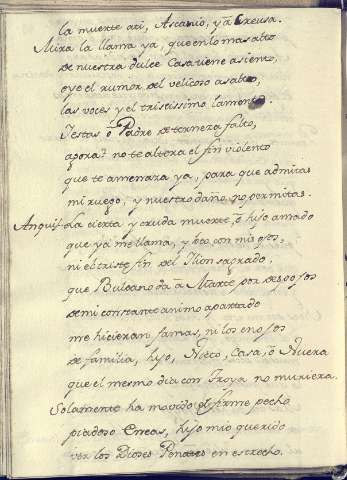 la muerte ati, Ascanio, y a Creusa.
Mira la llama ya, que enlo mas alto
de nuestra dulce Casa viene asiento,
oye el rumor del velicoso asalto,
las voces y el tristissimo lamento.
Jestas ô Padre de terneza falto,
agora? no te altera el fin violento
que te amenaza ya, para que admitas
mi ruego, y nuestro daño no permitas.
Anquis. La cierta y cruda muerte, ô hijo amado
que ya me llama, y veo con mis ojos,
ni el triste fin del Ilion sagrado,
que Bulcano da â Marte por despojos
de mi constante animo apartado
me hicieran jamas, ni los enojos
de familia, hijo, Nieto, Casa, ô Nuera
que el mesmo dia con Troya no muriera.
Solamente ha movido el firme pecho
piadoso Eneas, hijo mio querido
ver los Dioses Penates en estrecho.